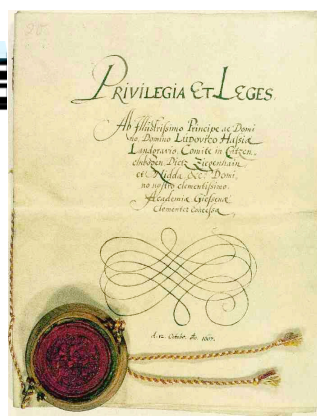 PRIVILEGIA ET LEGES
Ab Illustrissimo Principe ac Domi
no, Domino LUDOVICO Hassiæ
Landgravio, Comite in Catzen-
elnbogen, Dietz, Ziegenhain
et Nidda &c. Domi,
no nostro clementissimo.
Academiæ Giessenæ
Clementer Concessa
d. 12. Octobr. Ao. 1607.